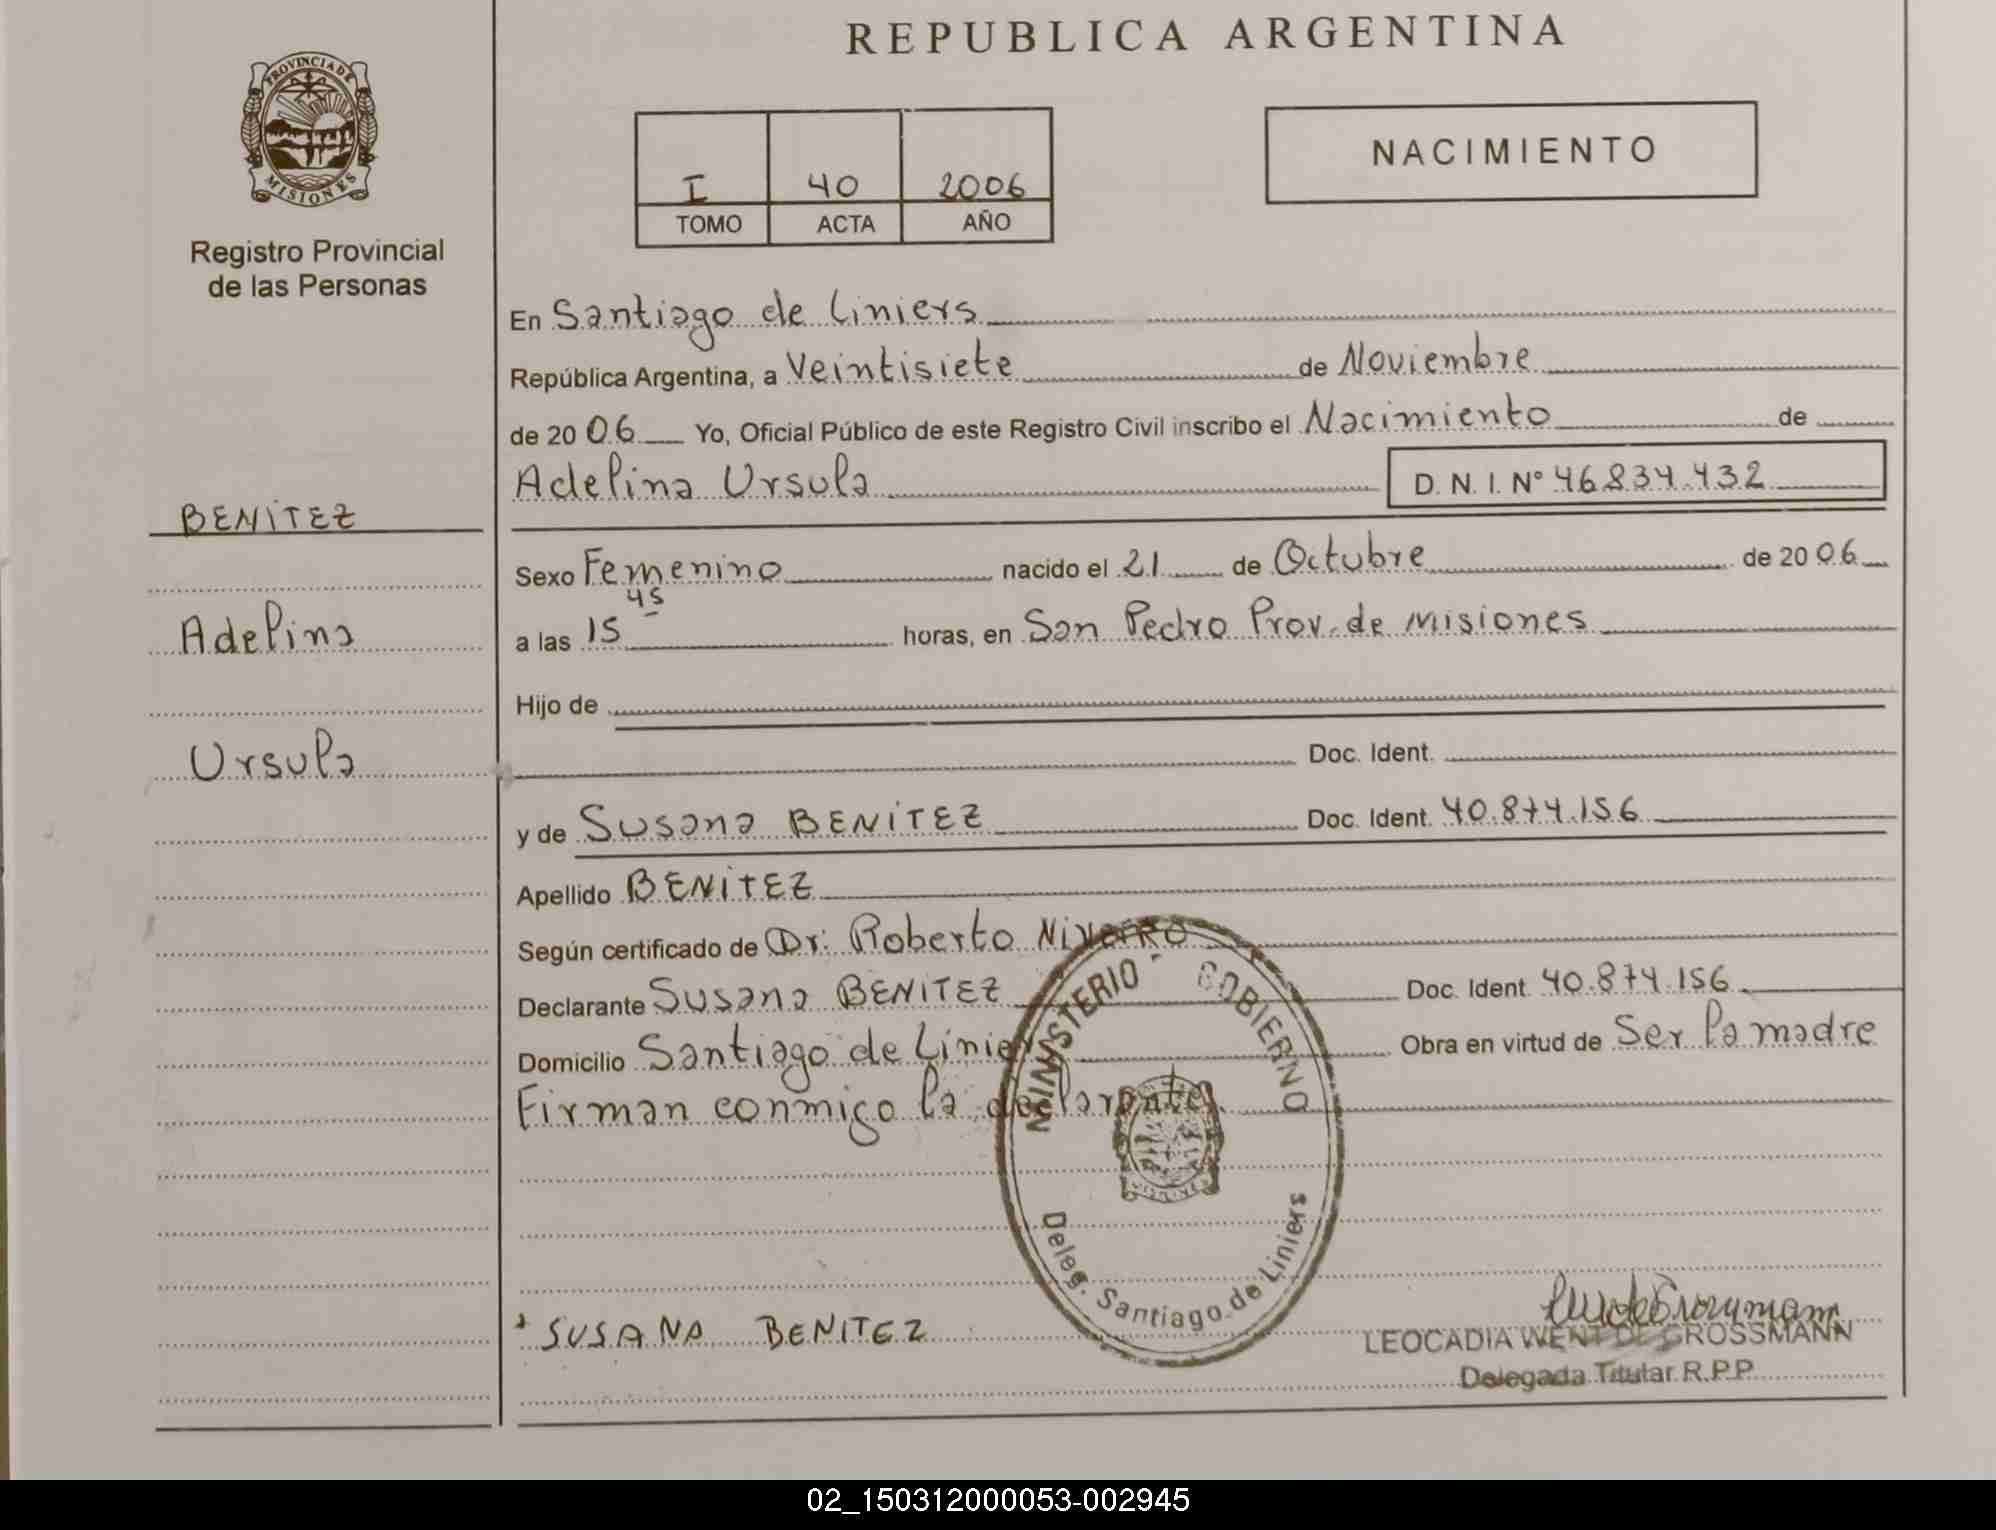 REPUBLICA ARGENTINA
PROVINCIA DE
MISIONES
Registro Provincial
de las Personas
I 40 2006
TOMO ACTA AÑO
NACIMIENTO
En Santiago de Liniers
República Argentina, a Veintisiete de Noviembre
de 20 06 Yo, Oficial Público de este Registro Civil inscribo el Nacimiento de
Adelina Ursula D. N. I. Nº 46.834.432
BENITEZ
Adelina
Ursula
Sexo Femenino nacido el 21 de Octubre de 20 06
a las 15 45 horas, en San Pedro Prov. de Misiones
Hijo de
Doc. Ident.
y de Susana BENITEZ Doc. Ident. 40.874.156
Apellido BENITEZ
Según certificado de Dr: Roberto
Declarante Susana BENITEZ Doc. Ident. 40.874.156
Domicilio Santiago de Liniers Obra en virtud de Ser la madre
Firman conmigo la declarante
MINISTERIO - GOBIERNO
Deleg. Santiago de Liniers
SUSANA BENITEZ
LEOCADIA WENT DE GROSSMANN
Delegada Titular R.P.P.
02_150312000053-002945